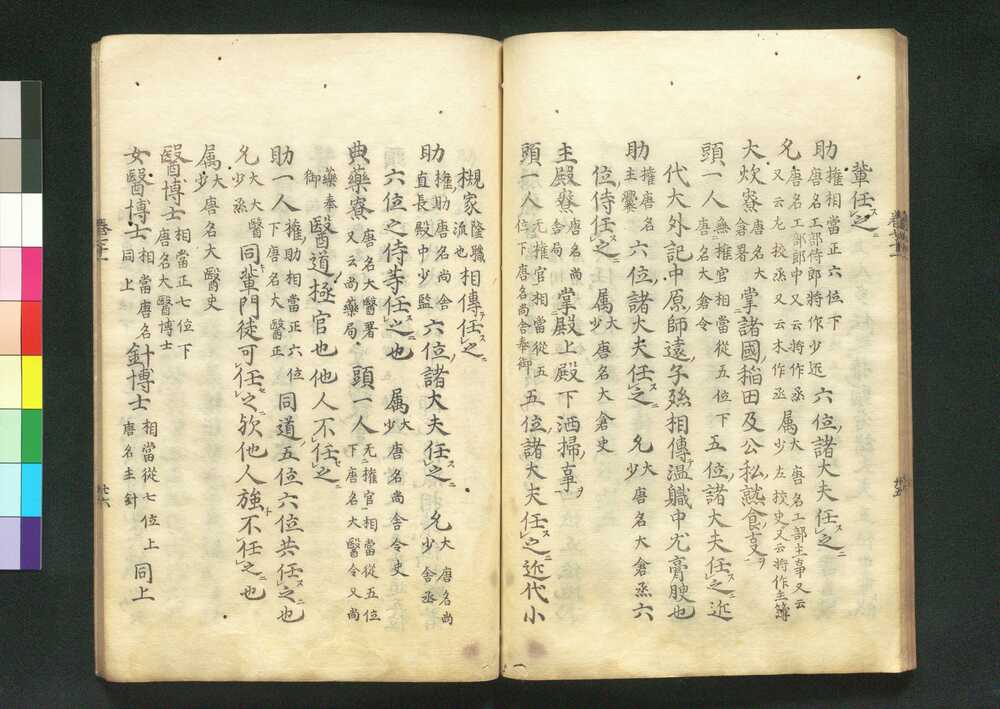 輩任之
助 權相當正六位下 唐名工部侍郎將作少迯 六位諸大夫任之
允 唐名工部郎中又云將作丞 又云左校丞又云木作丞 属 大 唐名工部主事又云 少 左校史又云將作主簿
大炊寮 唐名大 倉署 掌諸國稲田及公私熟食事
頭一人 無權官相當從五位下 唐名大倉令 五位諸大夫任之近
代大外記中原師遠子孫相傳温職中尤膏腴也
助 權唐名 主爨 六位諸大夫任之 允 大 少 唐名大倉丞六
位侍任之 属 大 少 唐名大倉史
主殿寮 唐名尚 舍局 掌殿上殿下洒掃事
頭一人 无權官相當從五 位下唐名尚舍奉御 五位諸大夫任之近代小
槻家 隆職 流也 相傳任之
助 權助唐名尚舍 直長殿中少監 六位諸大夫任之 允 大 唐名尚 少 舍丞
頭六位之侍等任之也 属 大 少 唐名尚舍令史
典藥寮 唐名大醫署 又云尚藥局 頭一人 无權官相當從五位 下唐名大醫令又尚
藥奉 御 醫道極官也他人不任之
助一人 權助相當正六位 下唐名大醫正 同道五位六位共任之也
允 大 大醫 少 丞 同輩門徒可任之欤他人強不任之也
属 大 少 唐名大醫史
醫博士 相當正七位下 唐名大醫博士
女醫博士 相當唐名 同上 針博士 相當從七位上 唐名主針 同上
卷二
廿五
卷二
廿六